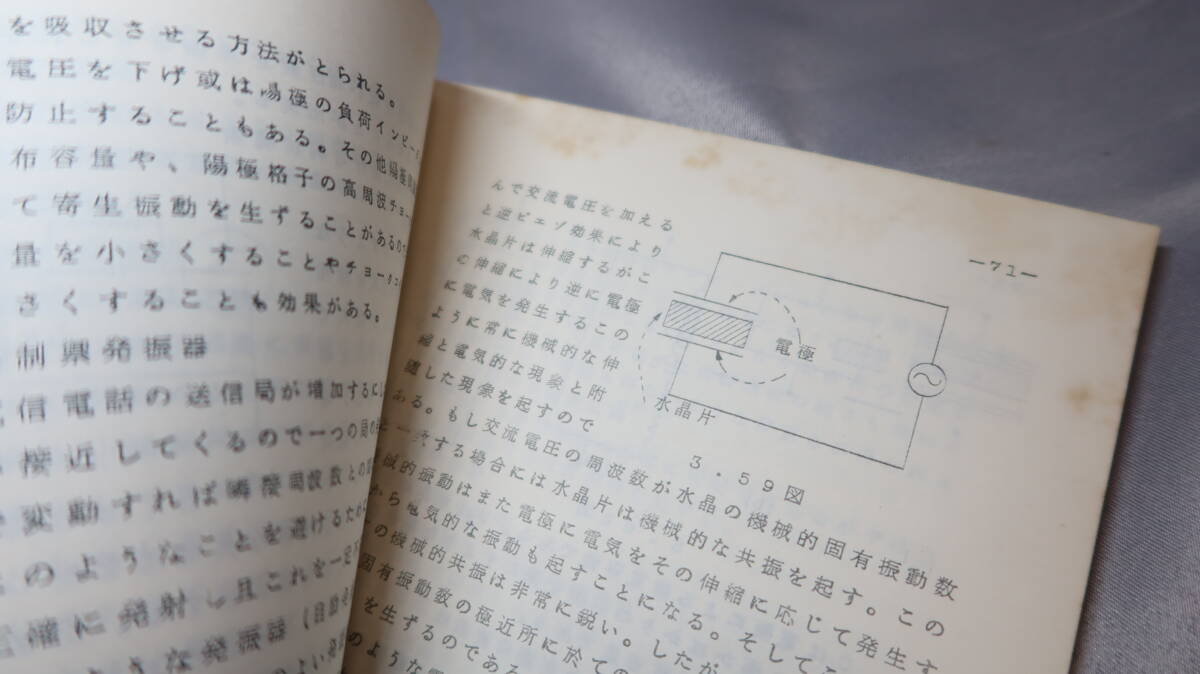 を吸収させる方法がとられる。
電圧を下げ或は陽極の負荷インピーダ
防止することもある。その他
布容量や、陽極格子の高周波チョー
て寄生振動を生ずることがあるので
量を小さくすることやチョーク
さくすることも効果がある。
制禦発振器
信電話の送信局が増加するに
接近してくるので一つの局の
変動すれば隣接周波数との
のようなことを避けるため
確に発射し且これを一定
うな発振器(自励
のよい発振
—71—
んで交流電圧を加える
と逆ピエゾ効果により
水晶片は伸縮するがこ
の伸縮により逆に電極
に電気を発生するこの
ように常に機械的な伸
縮と電気的な現象と附
随した現象を起すので
ある。もし交流電圧の周波数が水晶の機械的固有振動数
に一致する場合には水晶片は機械的な共振を起す。この
械的振動はまた電極に電気をその伸縮に応じて発生す
から電気的な振動も起すことになる。そしてこ
の機械的共振は非常に鋭い。したが
固有振動数の極近所に於ての
を生ずるのである
のような
電極
水晶片
3.59図